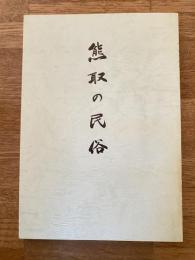 熊取の民俗